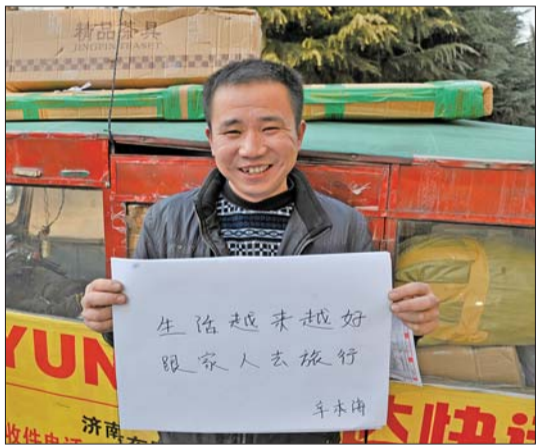 精品茶具
JINGPIN TEASET
生活越来越好
跟家人去旅行
YUN
济南
收件电话
快